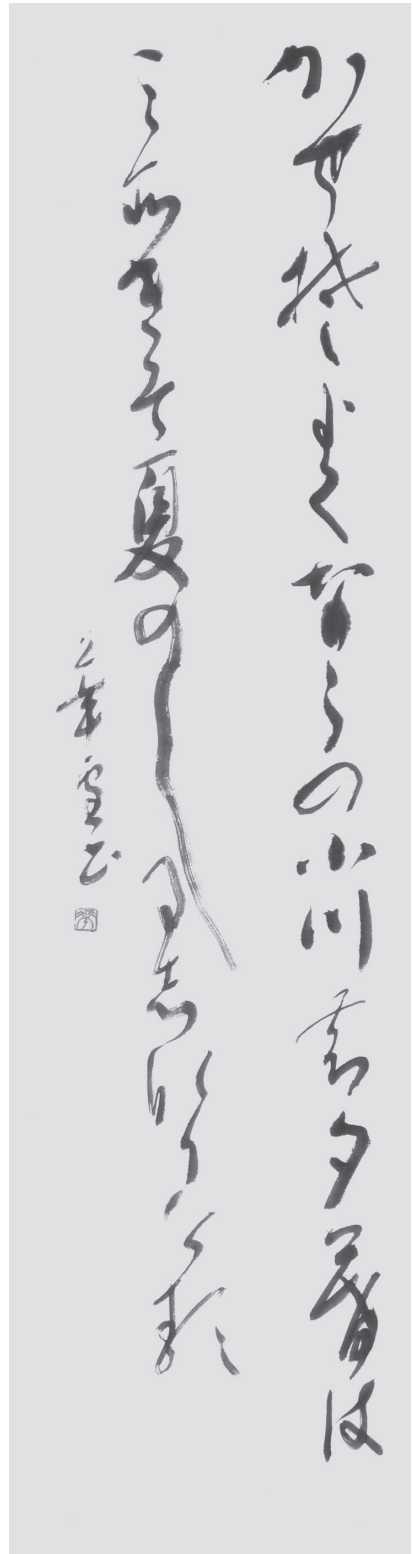 かせ楚よくならの小川の夕暮は
み所きそ夏のしる志なりける